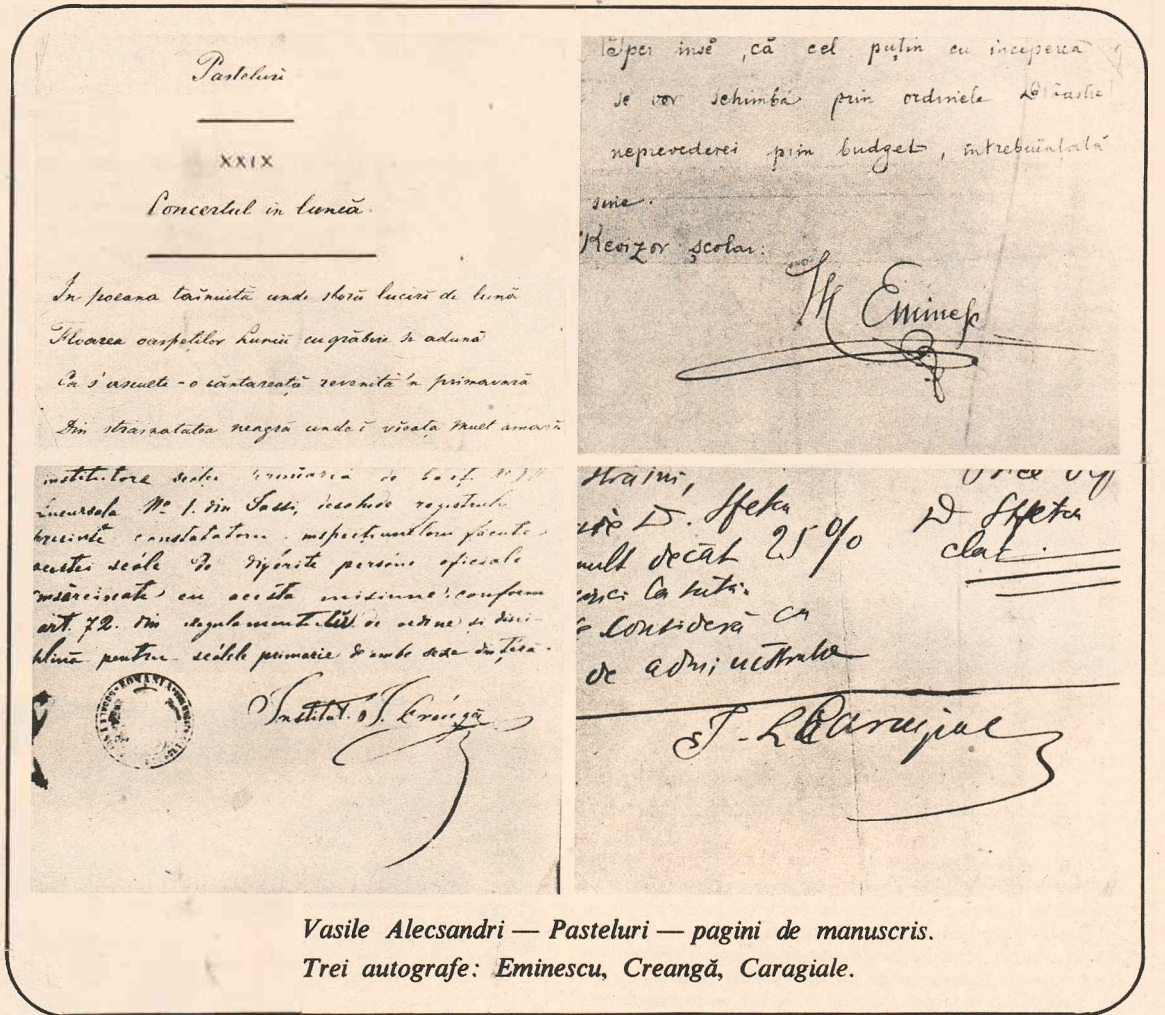 Pasteluri
XXIX
Concertul in luncă.
In poeana tăinuită unde sboră luciri de lună
Floarea oaspeților luncii cu grăbire se adună
Ca s'asculte-o cântăreață revenită'n primăvară
Din străinătatea neagră unde-i viața mult amară
Sper însĕ, că cel puțin cu începerea
se vor schimbà prin ordinele
neprevederei prin budget, întrebuințată
sine.
Revizor școlar:
M Eminescu
institutore
Sucursala No 1. din Iassi, deschide registrulu
presinte constatatoru inspecțiuniloru făcute
acestei scóle de diferite persóne oficiale
însărcinate cu acésta misiune: conform
art. 72. din regulamentulŭ de ordine și disci-
plină pentru scólele primarie de ambe sexe din țéră.
ROMANIA
Institut. I. Creangă
străini,
D. Sfetea
mult decât 25%
consideră ca
de administrația
D Sfetea
clar.
I. L. Caragiale
Vasile Alecsandri — Pasteluri — pagini de manuscris.
Trei autografe: Eminescu, Creangă, Caragiale.